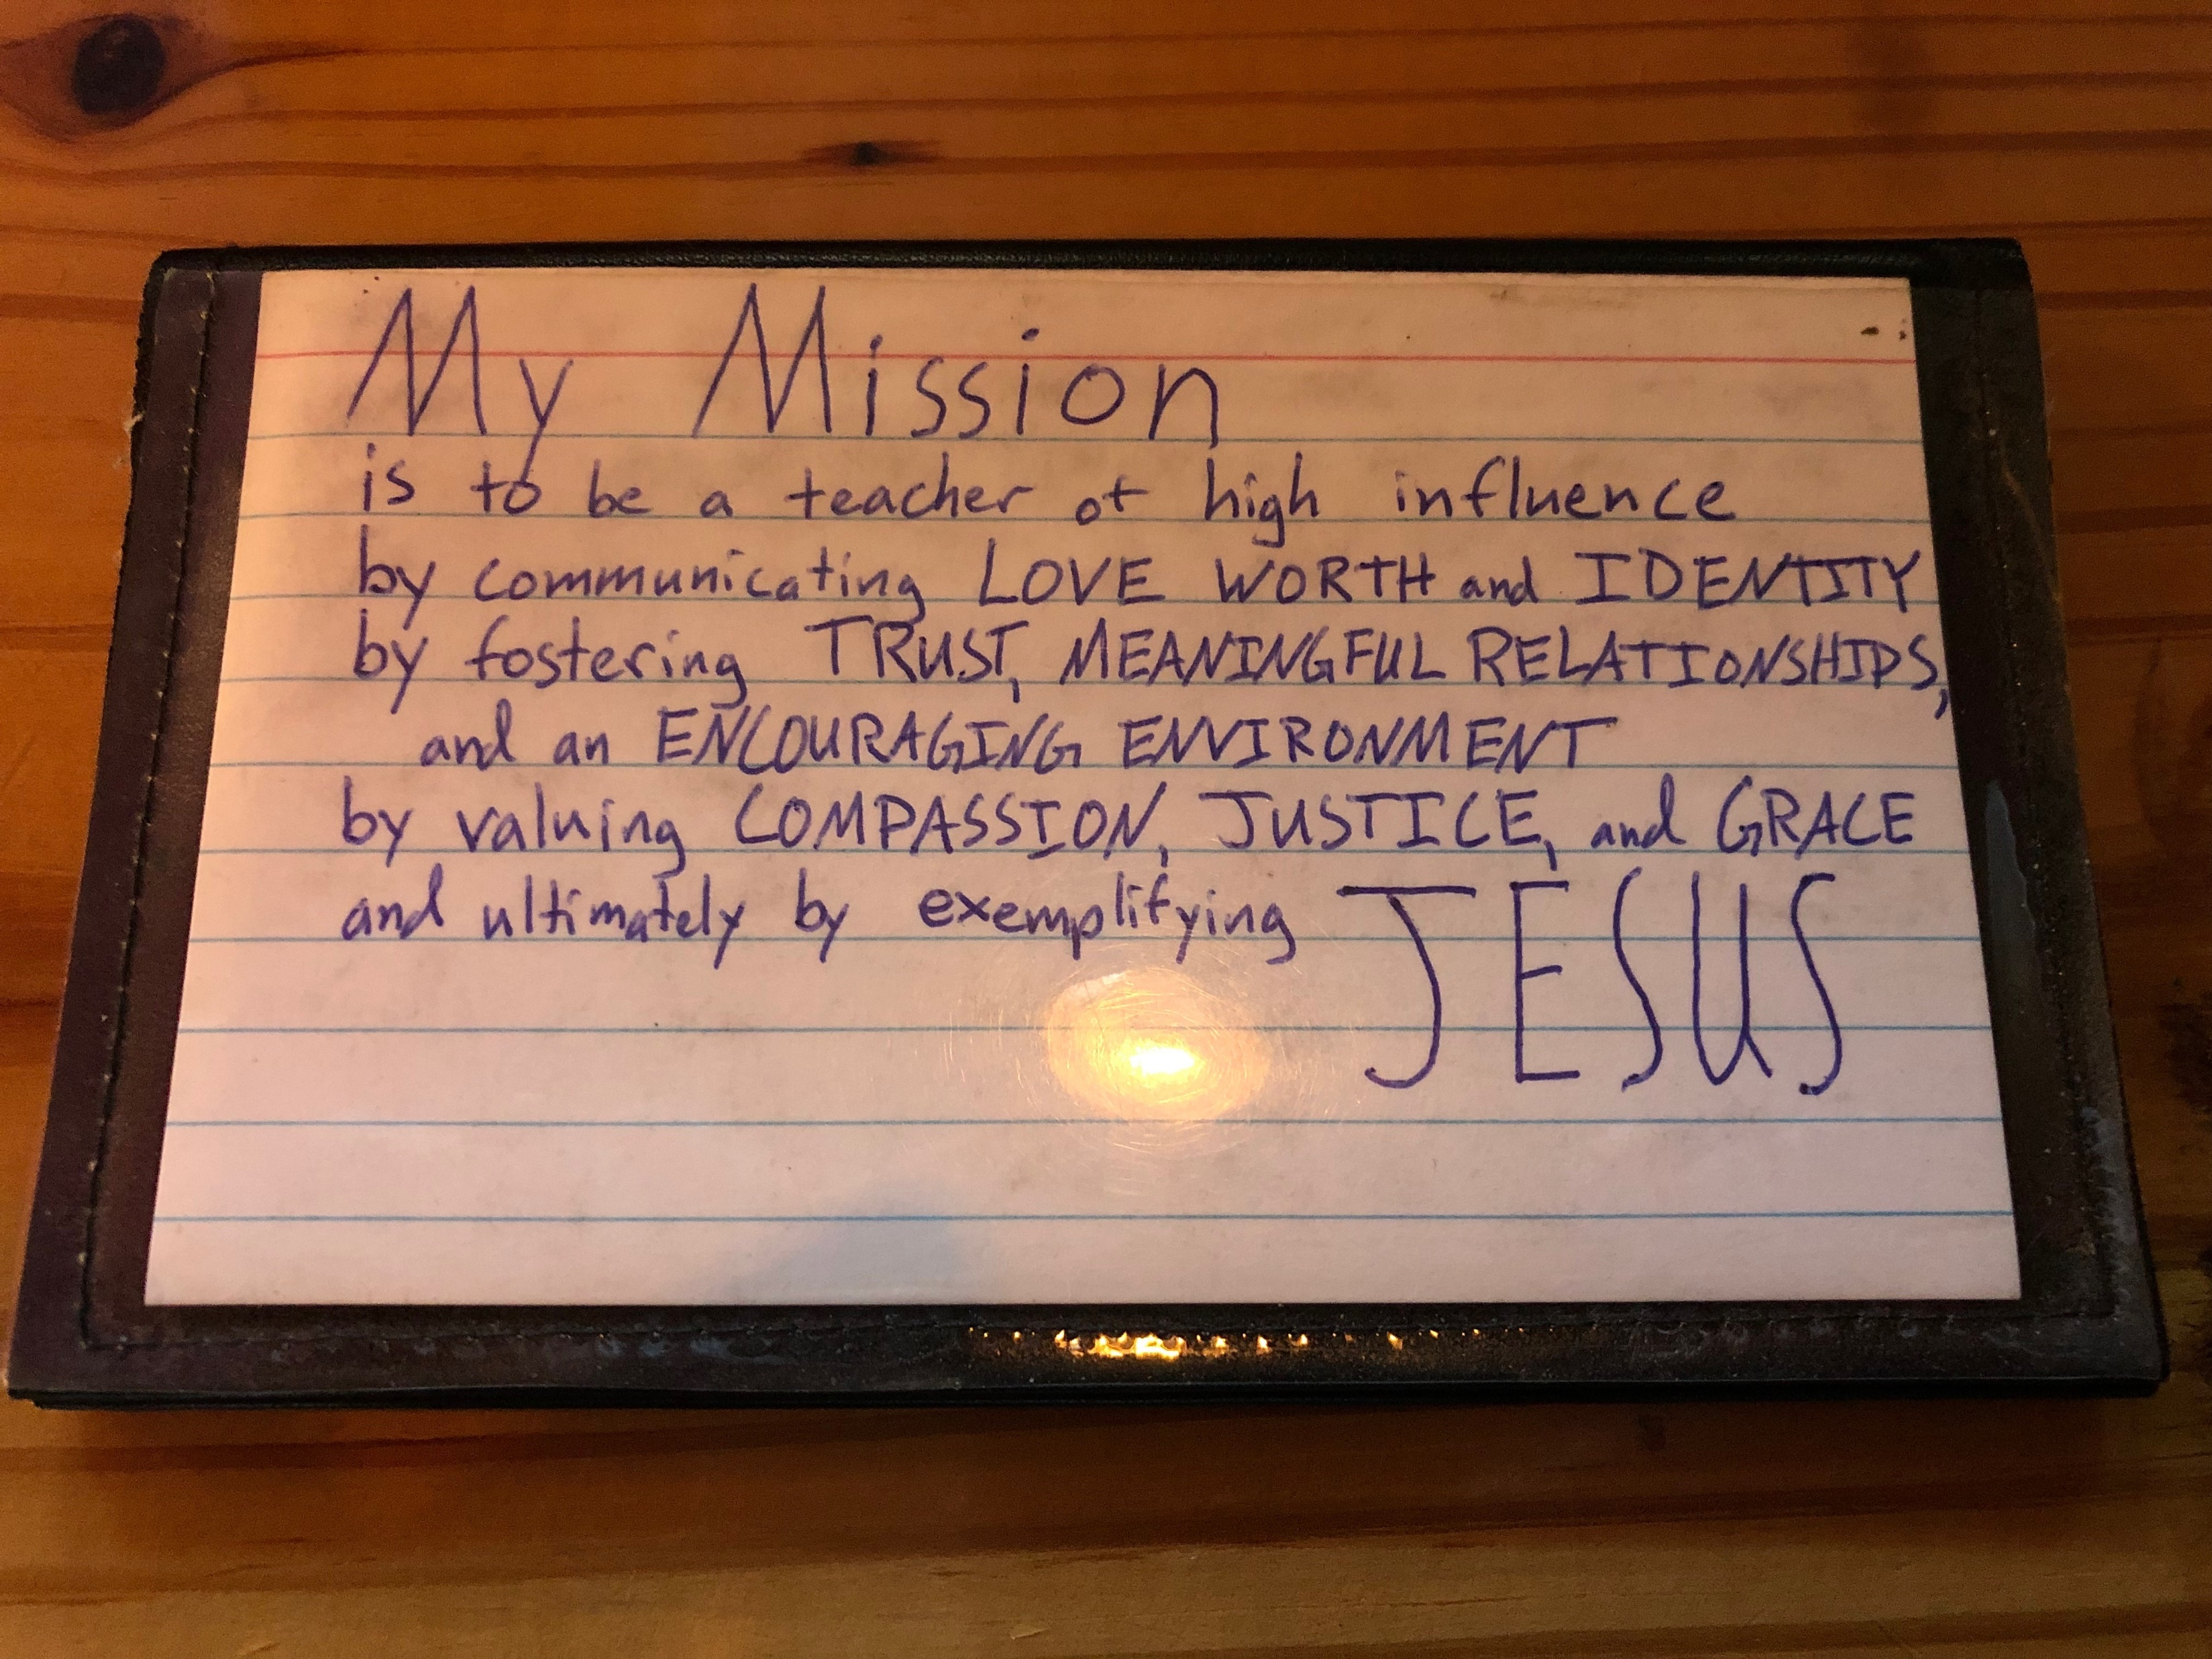 My Mission
is to be a teacher of high influence
by communicating LOVE WORTH and IDENTITY
by fostering TRUST, MEANINGFUL RELATIONSHIPS,
and an ENCOURAGING ENVIRONMENT
by valuing COMPASSION, JUSTICE, and GRACE
and ultimately by exemplifying JESUS